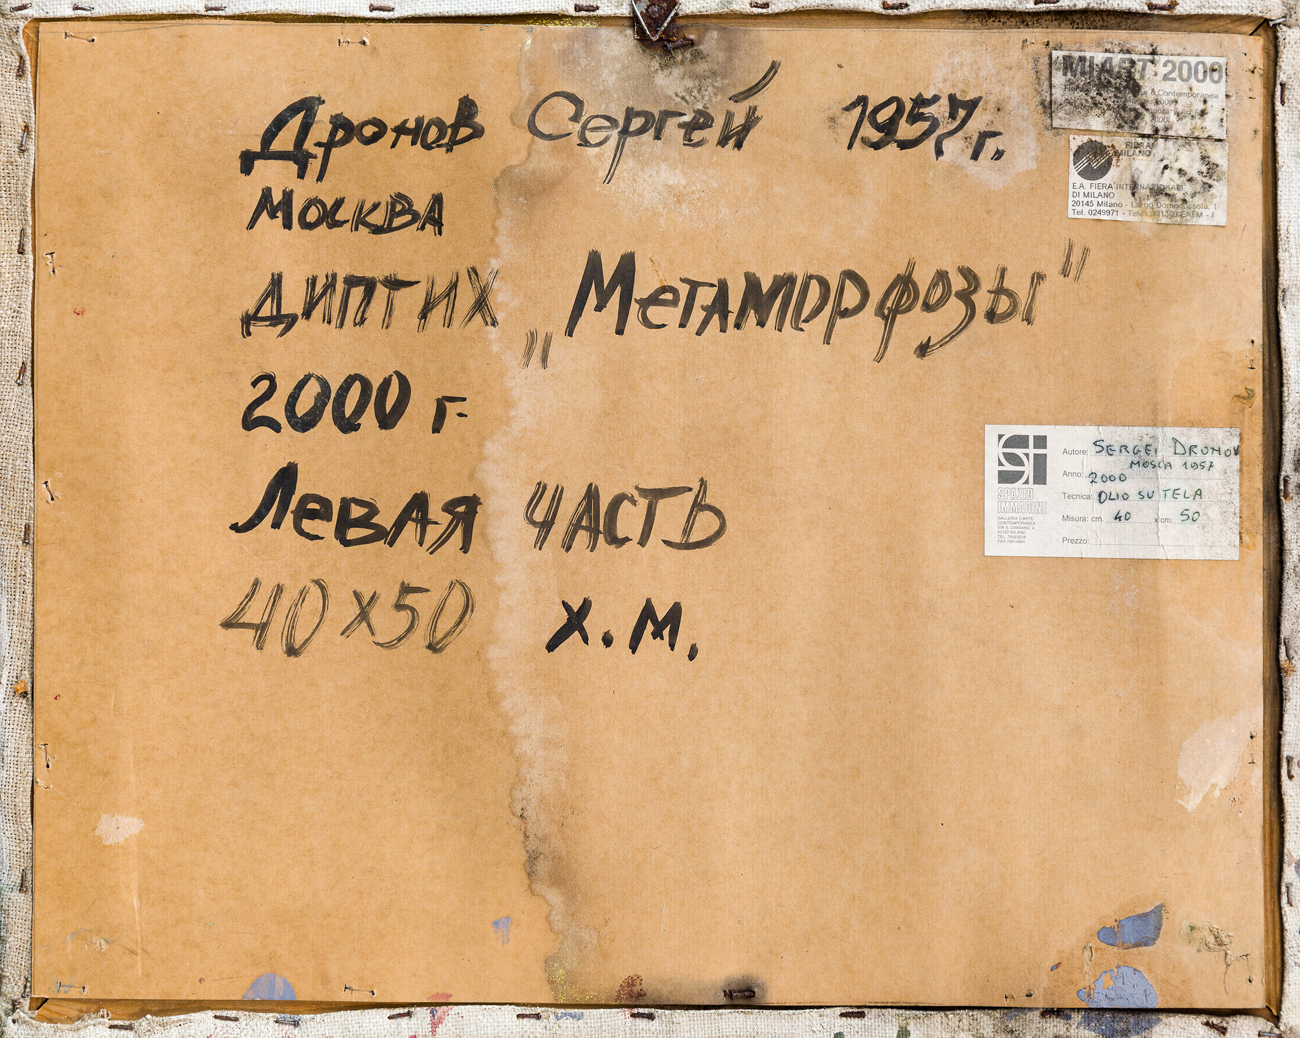 Дронов Сергей 1957 г.
Москва
диптих „Метаморфозы"
2000 г.
Левая часть
40 х 50 х.м.
MIART 2000
Contemporanea
FIERA
MILANO
E.A. FIERA INTERNAZIONALE
DI MILANO
20145 Milano - Largo Domodossola, 1
Tel. 0249971 - EAFM - I
SPAZIO
IMMAGINE
GALLERIA D'ARTE
CONTEMPORANEA
Autore: SERGEI DRONOV
MOSCA 1957
Anno: 2000
Tecnica: OLIO SU TELA
Misura: cm. 40 x cm. 50
Prezzo: